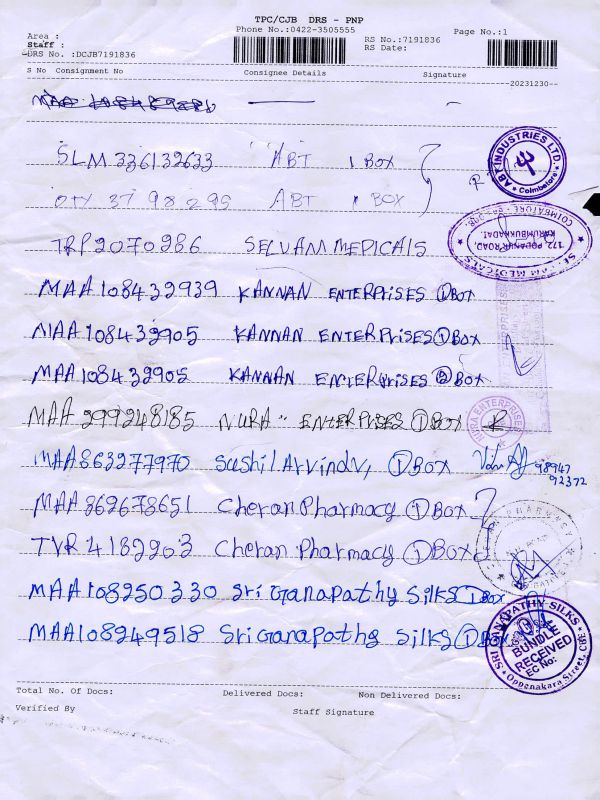 TPC/CJB DRS - PNP
Phone No.:0422-3505555
Page No.:1
Area :
RS No.:7191836
Staff :
RS Date:
DRS No.:DCJB7191836
S No Consignment No Consignee Details Signature
20231230--
SLM 336132633 ABT 1 BOX
37 98 295 ABT BOX
TRP2070286 SELVAM MEDICALS
MAA 108432939 KANNAN ENTERPRISES ① BOX
MAA 108432905 KANNAN ENTERPRISES ① BOX
MAA 108432905 KANNAN ENTERPRISES BOX
MAA 299248185 NURA ENTERPRISES ① BOX
MAA863277970 Sushil Arvindv, ① BOX 98947
92372
MAA 862678651 Cheran Pharmacy ① BOX
TVR 4182203 Cheran Pharmacy ① BOX
MAA 108250330 Sri Ganapathy Silks ① BOX
MAA108249518 Sri Ganapathy Silks ① BOX
ABT INDUSTRIES LTD.
* Coimbatore *
SELVAM MEDICALS
172 PODANUR ROAD,
KARUMBUKKADAI,
COIMBATORE
NURA ENTERPRISES
PHARMACY
SRI GANAPATHY SILKS
BUNDLE
RECEIVED
EC No:
Oppanakara Street, CBE
Total No. Of Docs: Delivered Docs: Non Delivered Docs:
Verified By Staff Signature